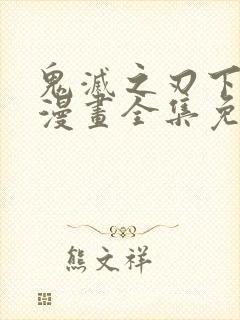 鬼滅之刃下
漫畫全集免
熊文祥